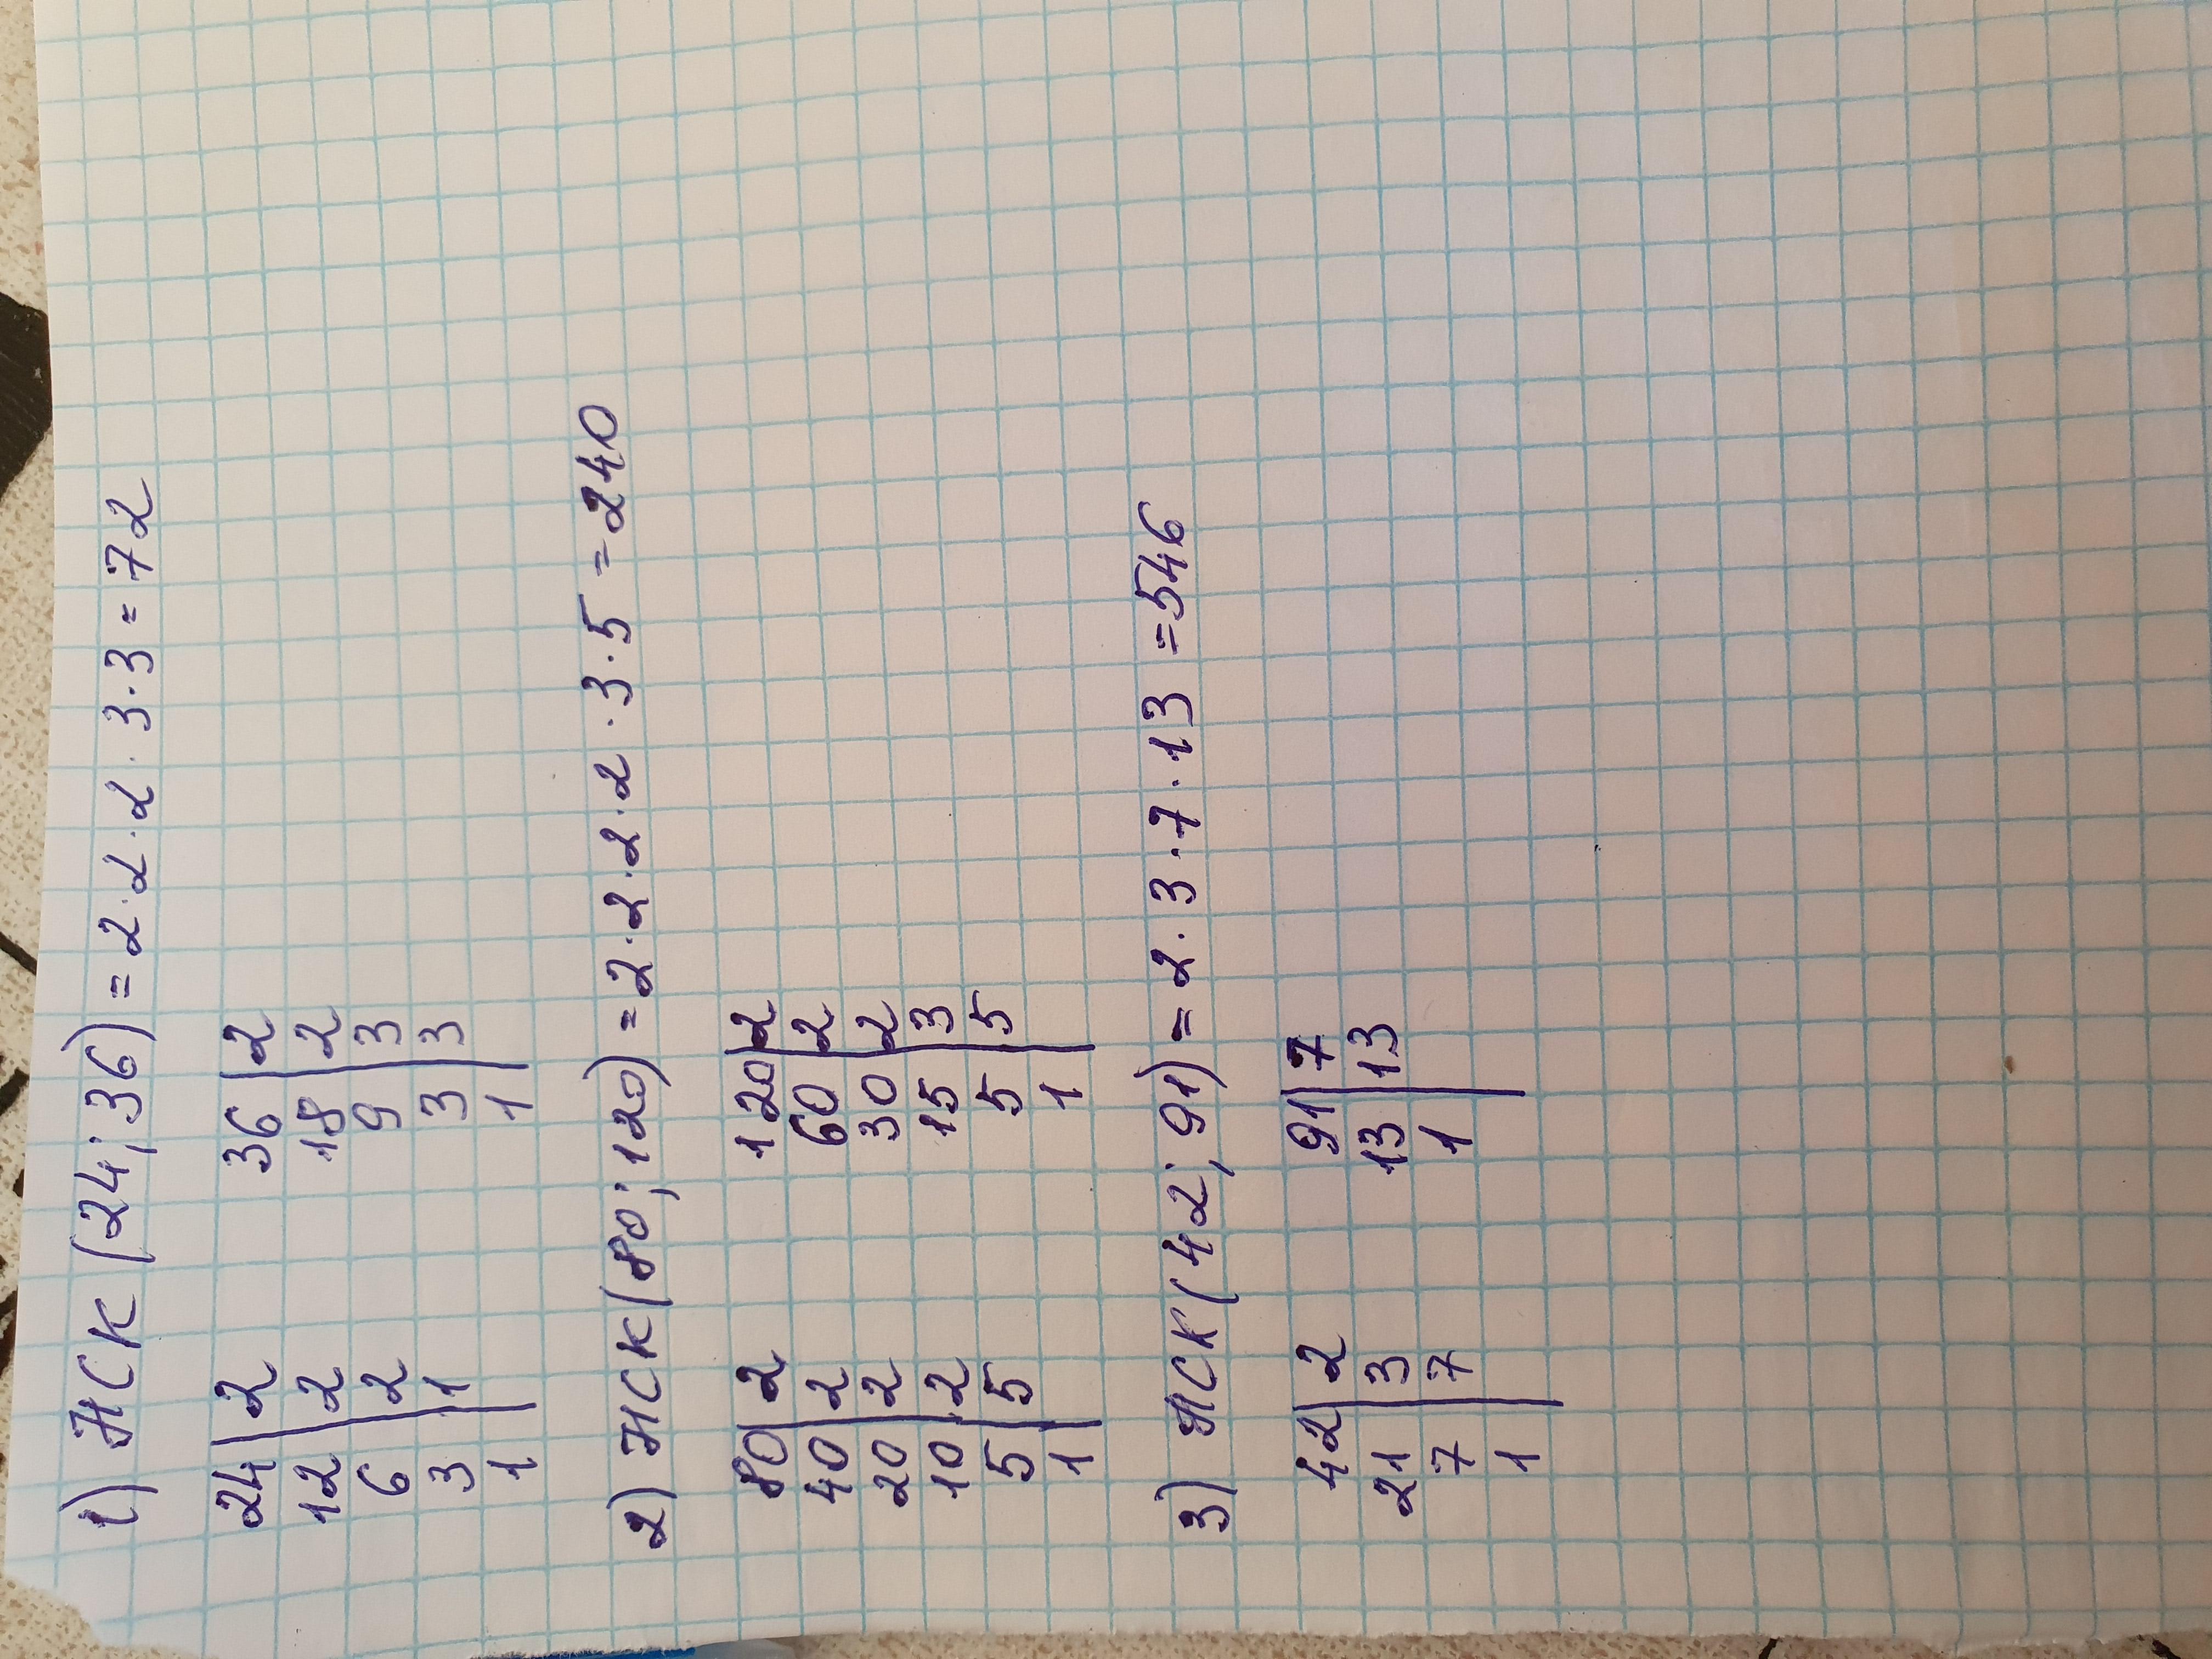 1) НСК (24; 36) = 2·2·2·3·3 = 72
24|2 36|2
12|2 18|2
6|2 9|3
3|1 3|3
1| 1|
2) НСК (80; 120) = 2·2·2·2·3·5 = 240
80|2 120|2
40|2 60|2
20|2 30|2
10|2 15|3
5|5 5|5
1| 1|
3) НСК (42; 91) = 2·3·7·13 = 546
42|2 91|7
21|3 13|13
7|7 1|
1|